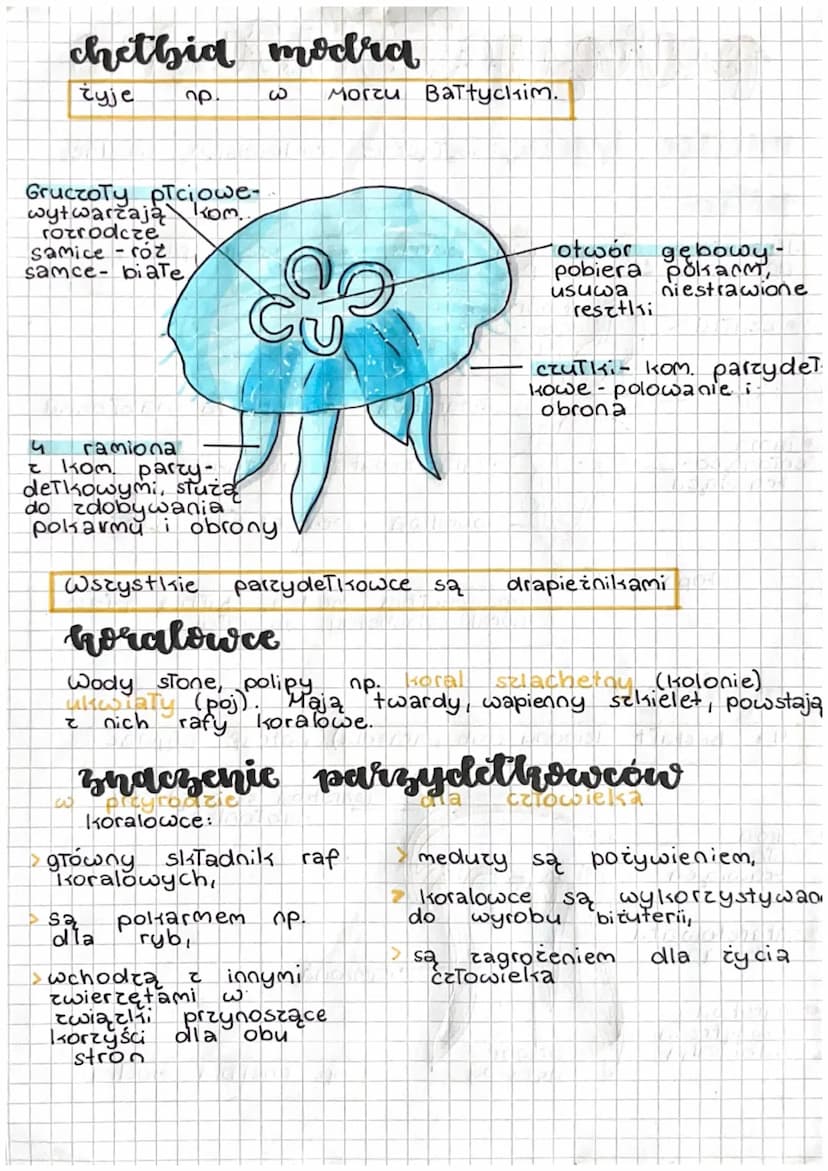 chełbia modra
żyje np. w Morzu Bałtyckim.
Gruczoły płciowe-
wytwarzają kom.
rozrodcze
samice - róż
samce - białe
otwór gębowy -
pobiera pokarm,
usuwa niestrawione
resztki
czułki - kom. parzydeł
kowe - polowanie i
obrona
4 ramiona
z kom. parzy-
dełkowymi, służą
do zdobywania
pokarmu i obrony
Wszystkie parzydełkowce są drapieżnikami
koralowce
Wody słone, polipy np. koral szlachetny (kolonie)
ukwiały (poj). Mają twardy, wapienny szkielet, powstają
z nich rafy koralowe.
znaczenie parzydełkowców
w przyrodzie
koralowce:
> główny składnik raf
koralowych,
> są pokarmem np.
dla ryb,
> wchodzą z innymi
zwierzętami w
związki przynoszące
korzyści dla obu
stron
dla człowieka
> meduzy są pożywieniem,
> koralowce są wykorzystywan
do wyrobu biżuterii,
> są zagrożeniem dla życia
człowieka